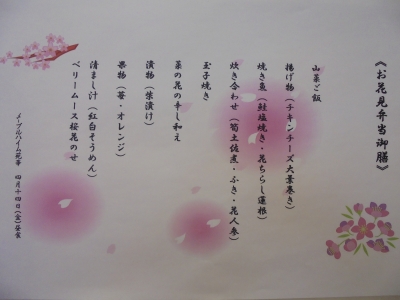 《お花見弁当御膳》
山菜ご飯
揚げ物（チキンチーズ大葉巻き）
焼き魚（鮭塩焼き・花ちらし蓮根）
炊き合わせ（筍土佐煮・ふき・花人参）
玉子焼き
菜の花の辛し和え
漬物（柴漬け）
果物（苺・オレンジ）
清まし汁（紅白そうめん）
ベリームース桜花のせ
メープルハイム苑 四月十四日（金）昼食